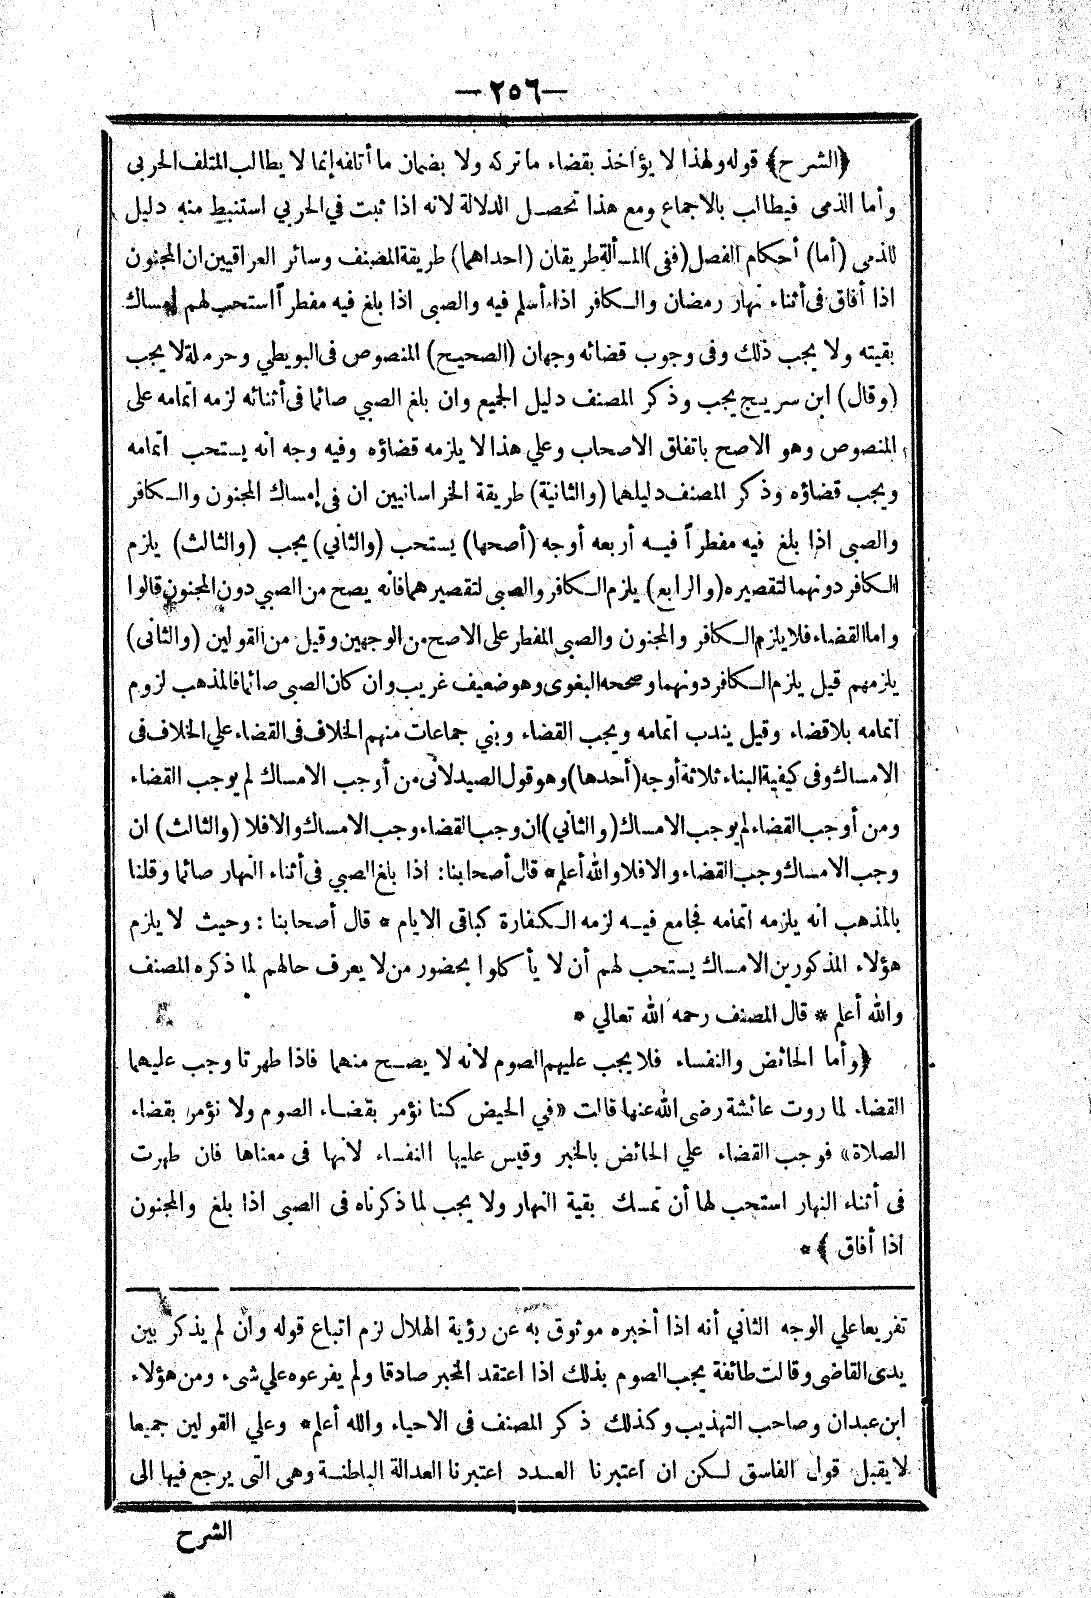 — ٢٥٦ —
﴿الشرح﴾ قوله ولهذا لا يؤاخذ بقضاء ما تركه ولا بضمان ما أتلفه إنما لا يطالب المتلف الحربى
وأما الذمى فيطالب بالاجماع ومع هذا تحصل الدلالة لانه اذا ثبت في الحربي استنبط منه دليل
للذمى (أما) أحكام الفصل (ففى) المسألة طريقان (احداهما) طريقة المصنف وسائر العراقيين ان المجنون
اذا أفاق فى أثناء نهار رمضان والكافر اذا أسلم فيه والصبى اذا بلغ فيه مفطراً استحب لهم إمساك
بقيته ولا يجب ذلك وفى وجوب قضائه وجهان (الصحيح) المنصوص فى البويطي وحرملة لا يجب
(وقال) ابن سريج يجب وذكر المصنف دليل الجميع وان بلغ الصبي صائما فى أثنائه لزمه اتمامه على
المنصوص وهو الاصح باتفاق الاصحاب وعلي هذا لا يلزمه قضاؤه وفيه وجه انه يستحب اتمامه
ويجب قضاؤه وذكر المصنف دليلهما (والثانية) طريقة الخراسانيين ان فى إمساك المجنون والكافر
والصبى اذا بلغ فيه مفطراً فيه أربعه أوجه (أصحها) يستحب (والثاني) يجب (والثالث) يلزم
الكافر دونهما لتقصيره (والرابع) يلزم الكافر والصبى لتقصيرهما فانه يصح من الصبي دون المجنون قالوا
واما القضاء فلا يلزم الكافر والمجنون والصبى المفطر على الاصح من الوجهين وقيل من القولين (والثانى)
يلزمهم قيل يلزم الكافر دونهما وصححه البغوى وهو ضعيف غريب وان كان الصبى صائما فالمذهب لزوم
اتمامه بلا قضاء وقيل يندب اتمامه ويجب القضاء وبني جماعات منهم الخلاف فى القضاء علي الخلاف فى
الامساك وفى كيفية البناء ثلاثة أوجه (أحدها) وهو قول الصيدلانى من أوجب الامساك لم يوجب القضاء
ومن أوجب القضاء لم يوجب الامساك (والثاني) ان وجب القضاء وجب الامساك والافلا (والثالث) ان
وجب الامساك وجب القضاء والافلا والله أعلم * قال أصحابنا : اذا بلغ الصبي فى أثناء النهار صائما وقلنا
بالمذهب انه يلزمه اتمامه فجامع فيه لزمه الكفارة كباقى الايام * قال أصحابنا : وحيث لا يلزم
هؤلاء المذكورين الامساك يستحب لهم أن لا يأكلوا بحضور من لا يعرف حالهم لما ذكره المصنف
والله أعلم * قال المصنف رحمه الله تعالي *
﴿وأما الحائض والنفساء فلا يجب عليهم الصوم لانه لا يصح منهما فاذا طهرتا وجب عليهما
القضاء لما روت عائشة رضى الله عنها قالت «في الحيض كنا نؤمر بقضاء الصوم ولا نؤمر بقضاء
الصلاة» فوجب القضاء علي الحائض بالخبر وقيس عليها النفساء لانها فى معناها فان طهرت
فى أثناء النهار استحب لها أن تمسك بقية النهار ولا يجب لما ذكرناه فى الصبى اذا بلغ والمجنون
اذا أفاق﴾*
تفريعا علي الوجه الثاني أنه اذا أخبره موثوق به عن رؤية الهلال لزم اتباع قوله وان لم يذكر بين
يدى القاضى وقالت طائفة يجب الصوم بذلك اذا اعتقد المخبر صادقا ولم يفرعوه علي شىء ومن هؤلاء
ابن عبدان وصاحب التهذيب وكذلك ذكر المصنف فى الاحياء والله أعلم * وعلي القولين جميعا
لا يقبل قول الفاسق لكن ان اعتبرنا العدد اعتبرنا العدالة الباطنة وهى التى يرجع فيها الى
الشرح